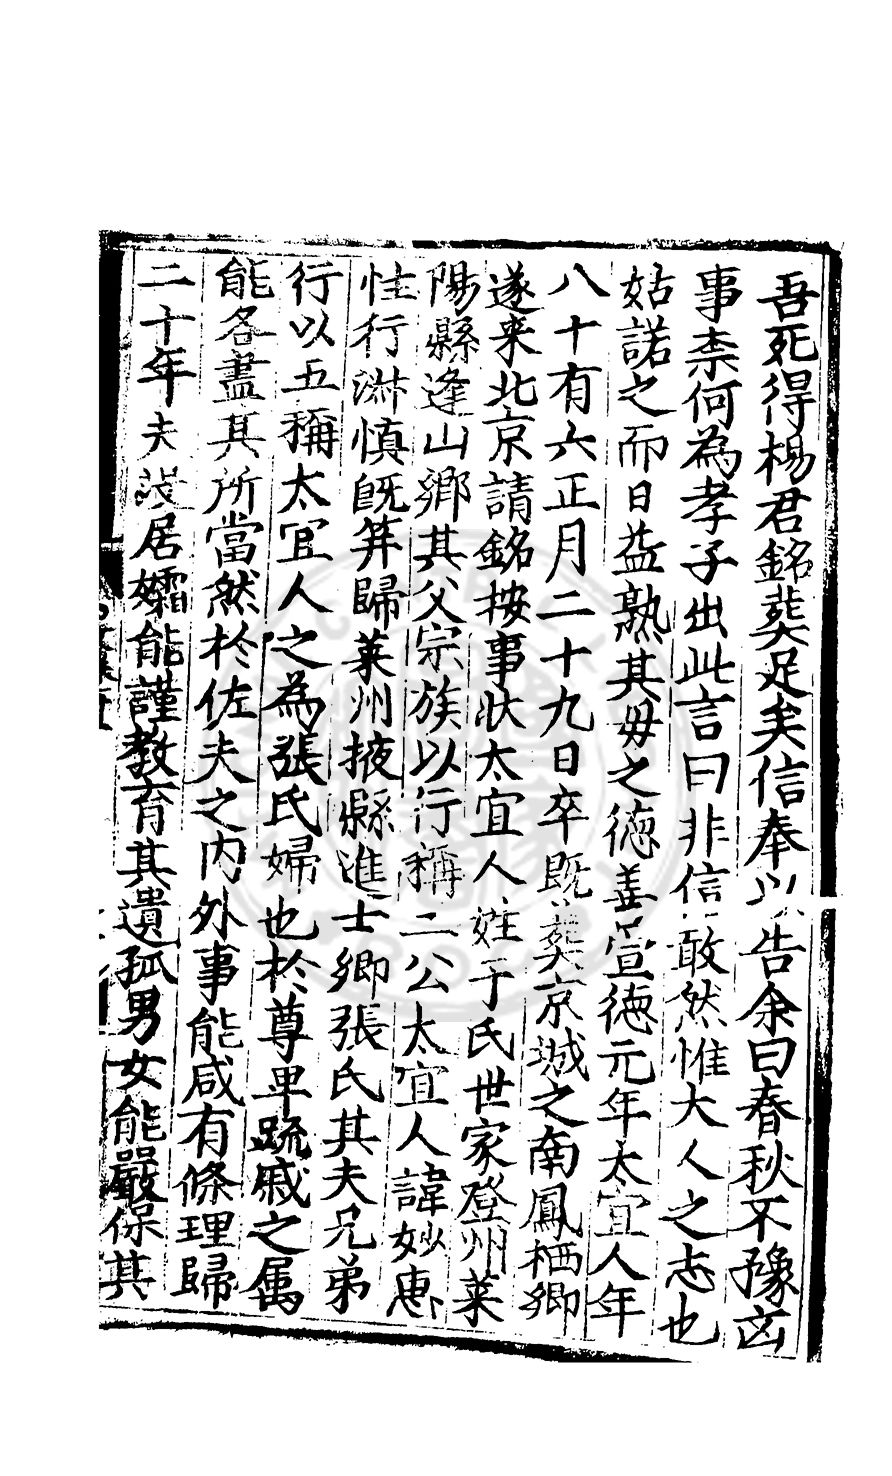 吾死得楊君銘葬足矣信奉以告余曰春秋不豫凶
事柰何為孝子出此言曰非信敢然惟大人之志也
姑諾之而日益熟其毋之德善宣德元年太宜人年
八十有六正月二十九日卒既葬京城之南鳳栖鄉
遂来北京請銘按事狀太宜人姓于氏世家登州萊
陽縣逢山鄉其父宗族以行稱二公太宜人諱妙惠
性行淋慎既笄歸萊州掖縣進士鄉張氏其夫兄弟
行以五稱太宜人之為張氏婦也於尊卑䟽戚之属
能各盡其所當然於佐夫之内外事能咸有條理歸
二十年夫沒居孀能謹教育其遺孤男女能嚴保其